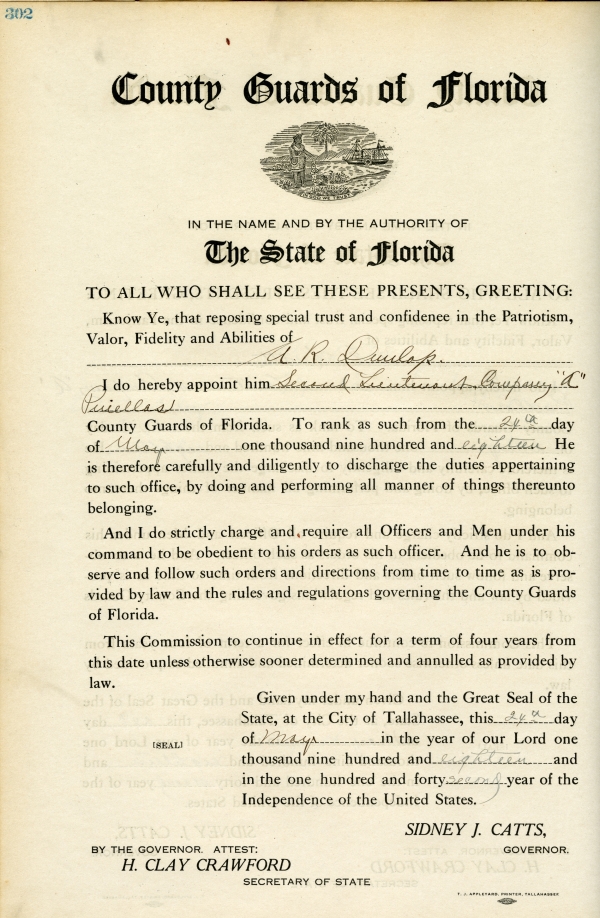 302
County Guards of Florida
IN GOD WE TRUST
IN THE NAME AND BY THE AUTHORITY OF
The State of Florida
TO ALL WHO SHALL SEE THESE PRESENTS, GREETING:
Know Ye, that reposing special trust and confidenee in the Patriotism,
Valor, Fidelity and Abilities of
A. R. Dunlop.
I do hereby appoint him Second Lieutenant Company "A"
Pinellas
County Guards of Florida. To rank as such from the 24th day
of May one thousand nine hundred and eighteen He
is therefore carefully and diligently to discharge the duties appertaining
to such office, by doing and performing all manner of things thereunto
belonging.
And I do strictly charge and require all Officers and Men under his
command to be obedient to his orders as such officer. And he is to ob-
serve and follow such orders and directions from time to time as is pro-
vided by law and the rules and regulations governing the County Guards
of Florida.
This Commission to continue in effect for a term of four years from
this date unless otherwise sooner determined and annulled as provided by
law.
Given under my hand and the Great Seal of the
State, at the City of Tallahassee, this 24th day
[SEAL] of May in the year of our Lord one
thousand nine hundred and eighteen and
in the one hundred and forty second year of the
Independence of the United States.
SIDNEY J. CATTS,
BY THE GOVERNOR. ATTEST: GOVERNOR.
H. CLAY CRAWFORD
SECRETARY OF STATE
T. J. APPLEYARD, PRINTER, TALLAHASSEE